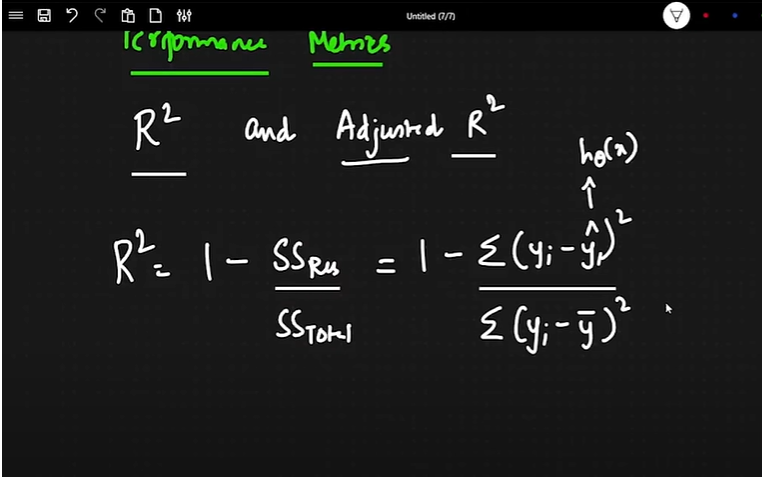 Untitled (7/7)
Performance Metrics
R² and Adjusted R²
hθ(x)
↑
R² = 1 - SS Res / SS Total = 1 - Σ(yi - ŷi)² / Σ(yi - ȳ)²